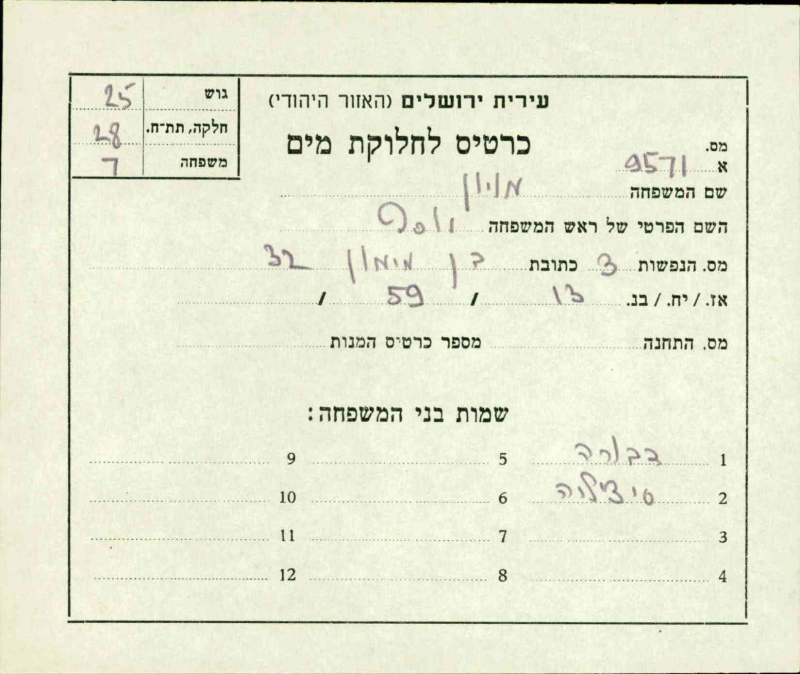 עירית ירושלים (האזור היהודי)
כרטיס לחלוקת מים
גוש 25
חלקה, תת-ח. 28
משפחה 7
מס. א 9571
שם המשפחה
השם הפרטי של ראש המשפחה יוסף
מס. הנפשות 3 כתובת בן מימון 32
אז. / יח. / בנ. 13 / 59 /
מס. התחנה מספר כרטיס המנות
שמות בני המשפחה:
1 דבורה 5 9
2 סיציליה 6 10
3 7 11
4 8 12